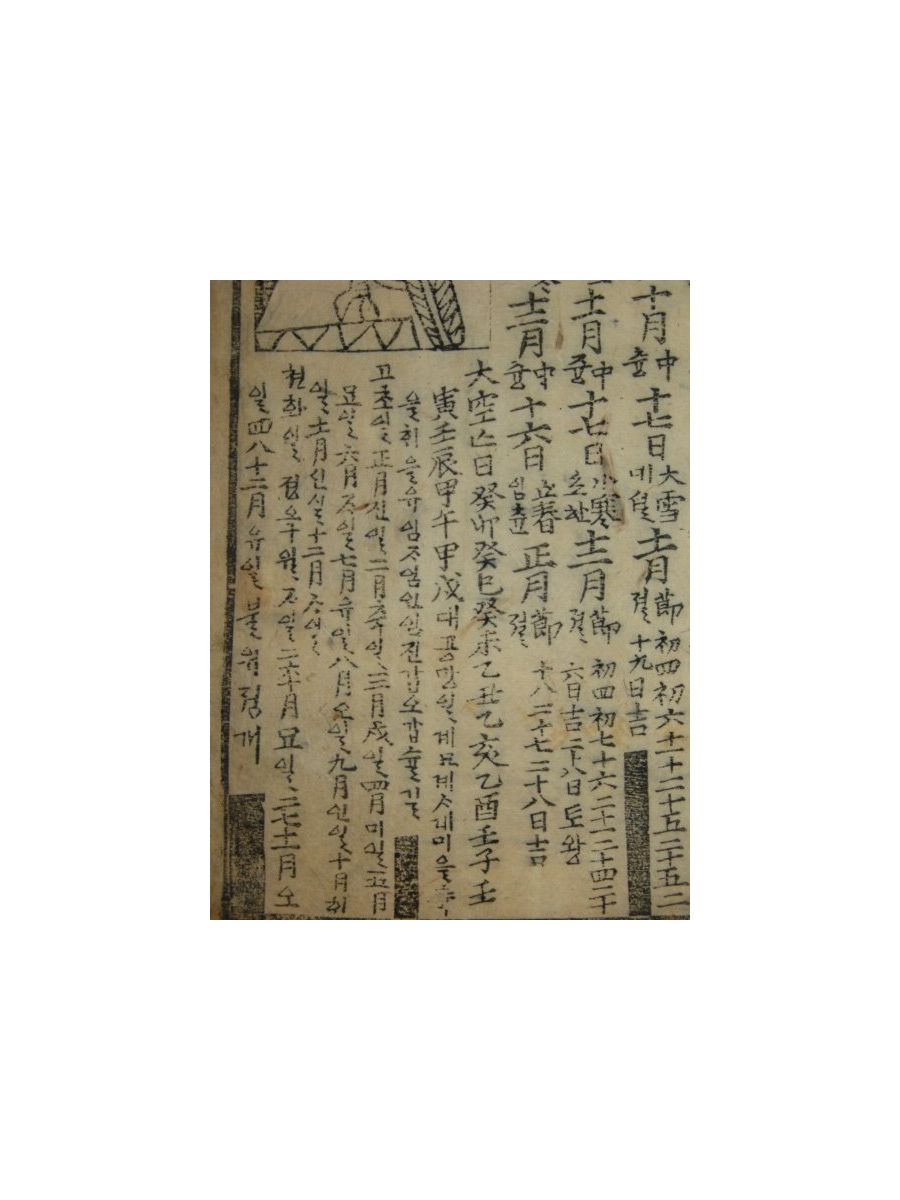 十月中즁十七日大雪대설十一月節절初四初六十一十二十五二十五二
十九日吉
十一月中즁十七日小寒소한十二月節절初四初七十六二十一二十四二十
六日吉二十八日토왕
十二月中즁十六日立春입춘正月節절
十八二十七二十八日吉
大空亡日癸卯癸巳癸未乙丑乙亥乙酉壬子壬
寅壬辰甲午甲戌대공망일계묘계사계미을축
을해을유임자임인임진갑오갑슐길
고초일正月진일二月축일三月戌일四月미일五月
묘일六月자일七月유일八月오일九月인일十月해
일十一月신일十二月사일
천화일正五九월자일二六十月묘일三七十一月오
일四八十二月유일불의겸개